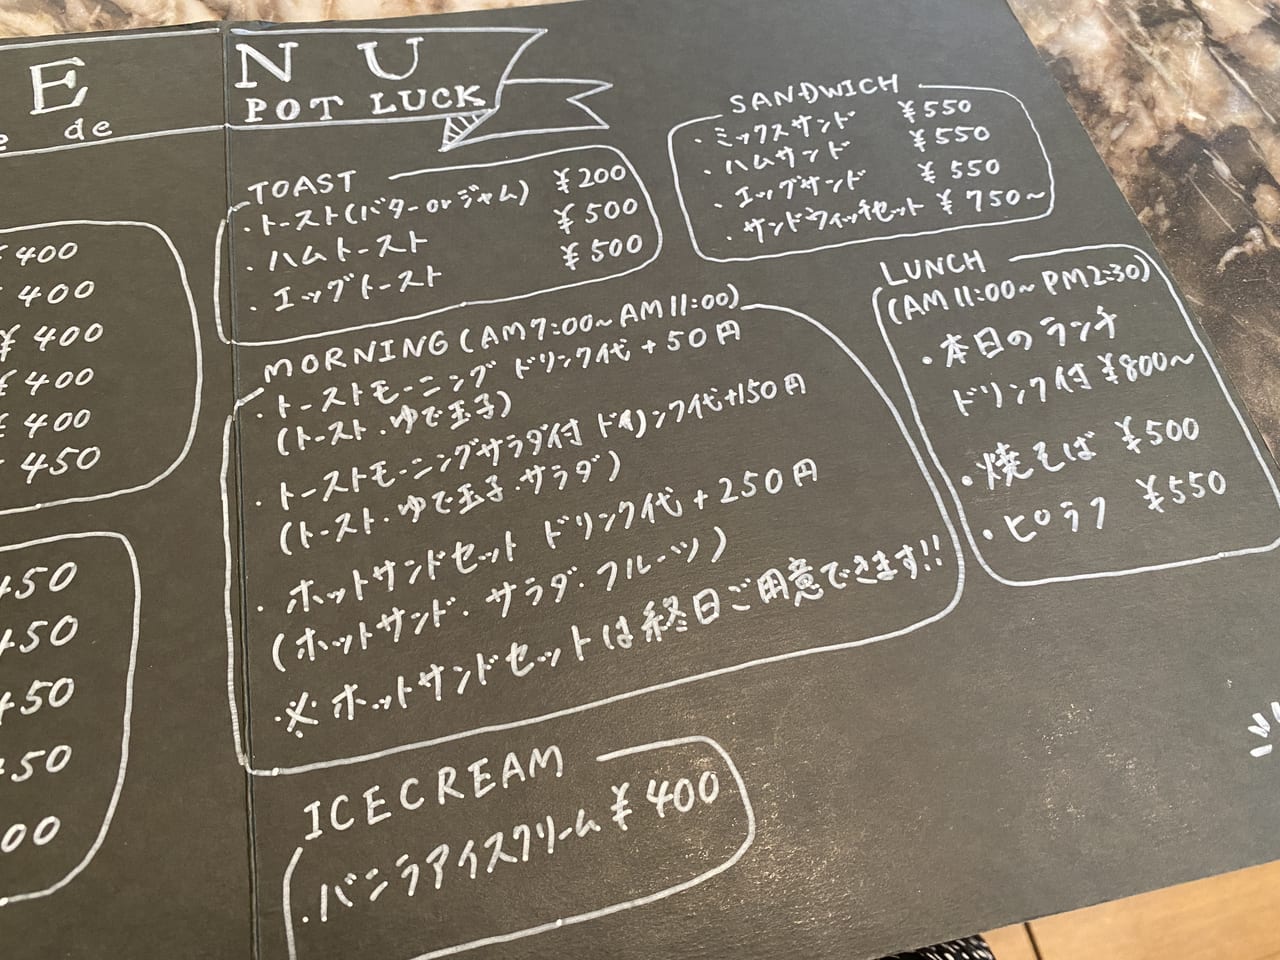 E
e de
¥400
¥400
¥400
¥400
¥400
450
450
450
450
450
00
N U
POT LUCK
TOAST
・トースト(バターorジャム) ¥200
・ハムトースト ¥500
・エッグトースト ¥500
MORNING(AM7:00~AM11:00)
・トーストモーニング ドリンク代+50円
(トースト・ゆで玉子)
・トーストモーニングサラダ付 ドリンク代+150円
(トースト・ゆで玉子・サラダ)
・ホットサンドセット ドリンク代+250円
(ホットサンド・サラダ・フルーツ)
※ホットサンドセットは終日ご用意できます!!
ICECREAM
・バニラアイスクリーム ¥400
SANDWICH
・ミックスサンド ¥550
・ハムサンド ¥550
・エッグサンド ¥550
・サンドウィッチセット ¥750~
LUNCH
(AM11:00~PM2:30)
・本日のランチ
ドリンク付 ¥800~
・焼そば ¥500
・ピラフ ¥550